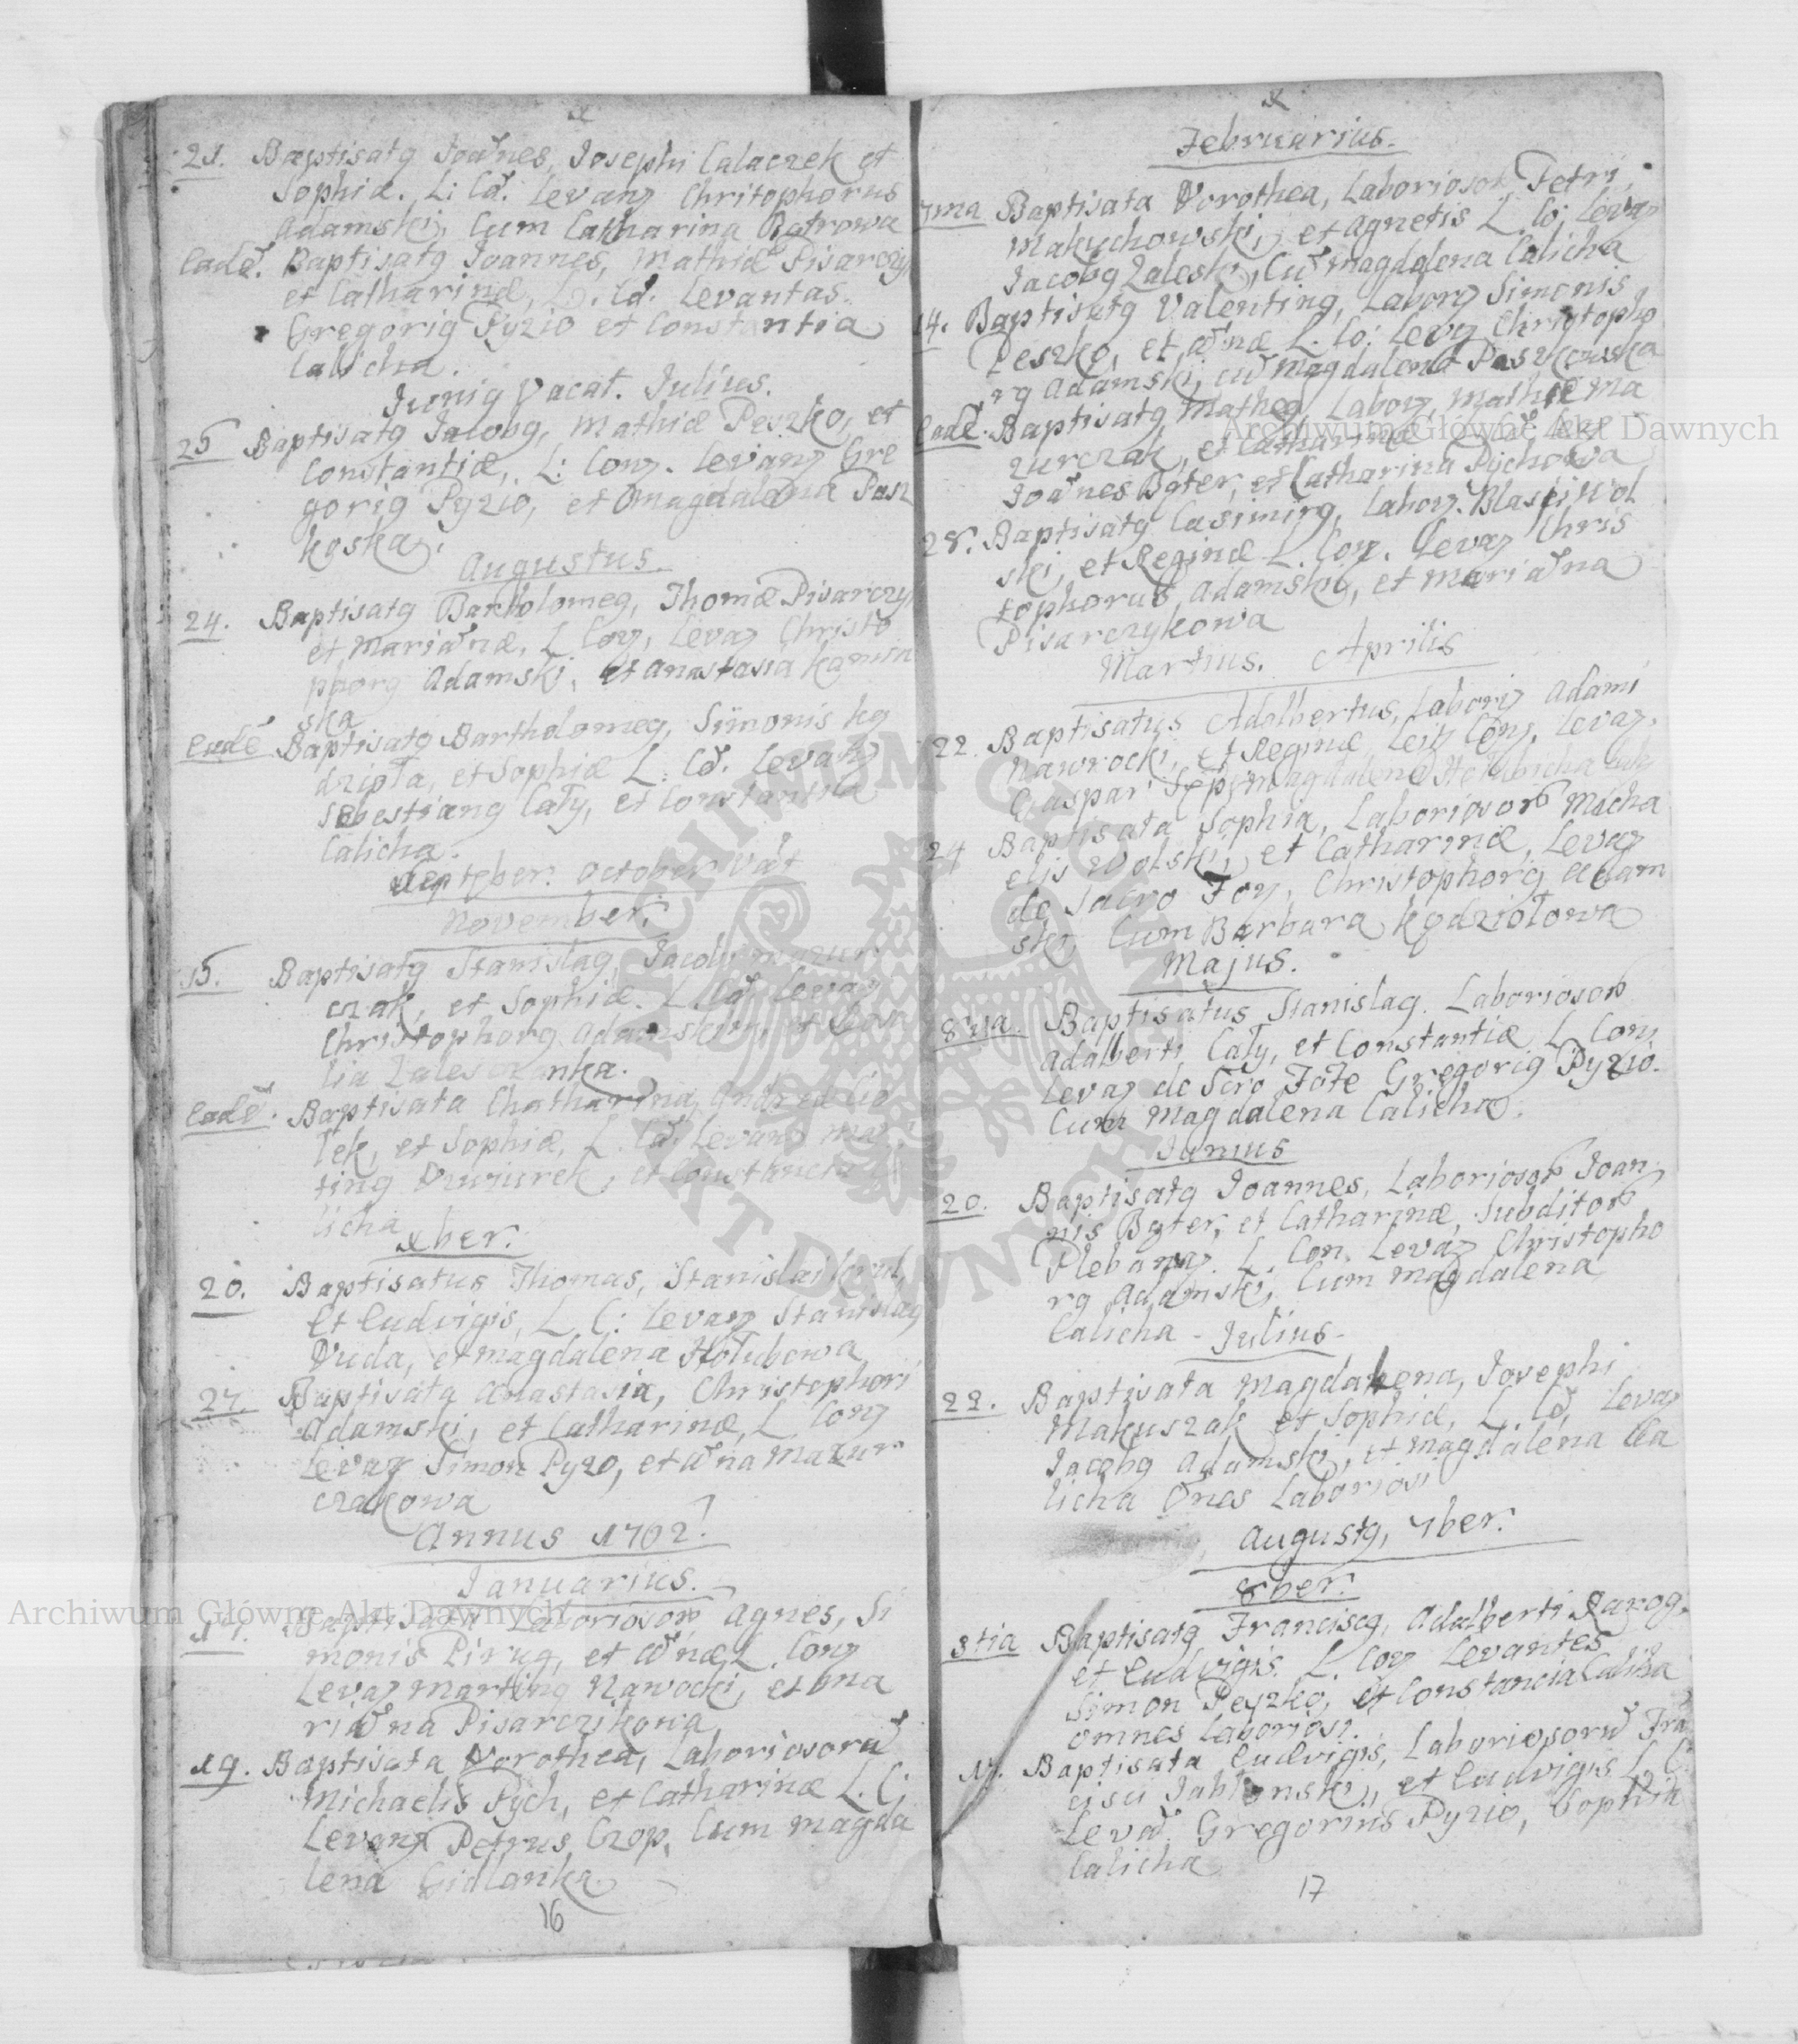 21. Baptisatg Joañes, Josephi Calaczek et
Sophiæ. L: Cõ. Levanz Christophorus
Adamski, Cum Catharina
Eadẽ. Baptisatg Joannes, Mathiæ Pisarczy
et Catharinæ, L. Cõ. Levantes
Gregorig Pyzio et Constantia
Calicha.
Junig Vacat. Julius.
25 Baptisatg Jacobg, Mathiæ Peszko, et
Constantiæ, L: Conz. Levanz Gre
gorig Pyzio, et Magdalena Pasz
koska.
Augustus
24. Baptisatg Bartolomeg, Thomæ Pisarczy
et Mariañæ, L Conz, Levaz Christo
phorg Adamski, et Anastasia
ska
Eadẽ Baptisatg Bartholomeg, Simonis Kę
dzioła, et Sophiæ L. Cõ. Levanz
Sebestiang Cały, et Constantia
Calicha.
September. October Vãt
November.
15. Baptisatg Stanislag, Jacobi Mazur
czak, et Sophiæ. L. Cõ Levaz
Christophorg Adamski, et
lia
Eadẽ. Baptisata Chatharina,
łek, et Sophiæ, L. Cõ. Levanz
ting et Constancia
licha
xber.
20. Baptisatus Thomas, Stanislai
et Ludvigis, L C: Levaz Stanislag
Duda, et Magdalena Hołubowa
27. Baptisata Anastasia, Christophori
Adamski, et Catharinæ, L Conz
Levaz Simon Pyzo, et Añna Mazur
czakowa
Annus 1702.
Januarius.
Baptisata Laboriosoɍ Agnes, Si
monis et Añæ L. Conz
Levaz Marting Nawocki, et Ma
riañna Pisarczikowa
19. Baptisata Dorothea, Laboriosorũ
Michaelis Pych, et Catharinæ L. C.
Levanz Petrus Czop, Cum Magda
lena Cidlanka
16
Februarius.
7ma Baptisata Dorothea, Laboriosoɍ Petri
Makuchowski, et Agnetis L. Cõ: Levaz
Jacobg Zaleski, Cũ Magdalena Calicha
14. Baptisatg Valenting, Laborz Simonis
Peszko, et Añæ L. Cõ: Levz Christopho
rg Adamski, cũ Magdalena Paszkowska
Eadẽ. Baptisatg Matheg Laborz, Mathiæ Ma
zurczak, et Catharinæ
Joañes Bąter, et Catharina Pychowa
28. Baptisatg Casimirg, Laborz. Blasij Wol
ski, et Reginæ L. Conz. Levaz Chris
tophorus Adamski, et Mariañna
Pisarczykowa
Martius. Aprilis
22. Baptisatus Adalbertus, Laborz Adami
Nawrocki, et Reginæ Conz. Levaz.
Gaspar Magdalena
24 Baptisata Sophia, Laboriosoɍ Micha
elis Wolski, et Catharinæ, Levaz
de Sacro Foz, Christophorg Adam
ski, Cum Barbara Kędziołowa
Majus.
8va. Baptisatus Stanislag. Laboriosoɍ
Adalberti Cały, et Constantiæ L Conz
Levaz de Scro Fõte Gregorig Pyzio.
Cum Magdalena Calicha.
Junius
20. Baptisatg Joannes, Laboriosoɍ Joan
nis Bąter, et Catharinæ, Subditoɍ
Plebanz. L. Con. Levaz Christopho
rg Adamski, Cum Magdalena
Calicha - Julius -
22. Baptisata Magdalena, Josephi
Makuszak et Sophiæ, L. Cõ Levaz
Jacobg Adamski, et Magdalena Ca
licha Õnes Laboriosi
Augustg, 7ber.
8ber.
3tia Baptisatg Franciscg, Adalberti
et Ludvigis. L. Conz Levantes
Simon Peyzko, et Constancia Calicha
omnes Laboriosi.
Baptisata Ludvigis, Laboriosorũ Frã
cisci Jablonski, et Ludvigis L. C.
Levã. Gregorius Pyzio, Sophia
Calicha
17
Archiwum Główne Akt Dawnych
Archiwum Główne Akt Dawnych
ARCHIWUM GŁÓWNE AKT DAWNYCH